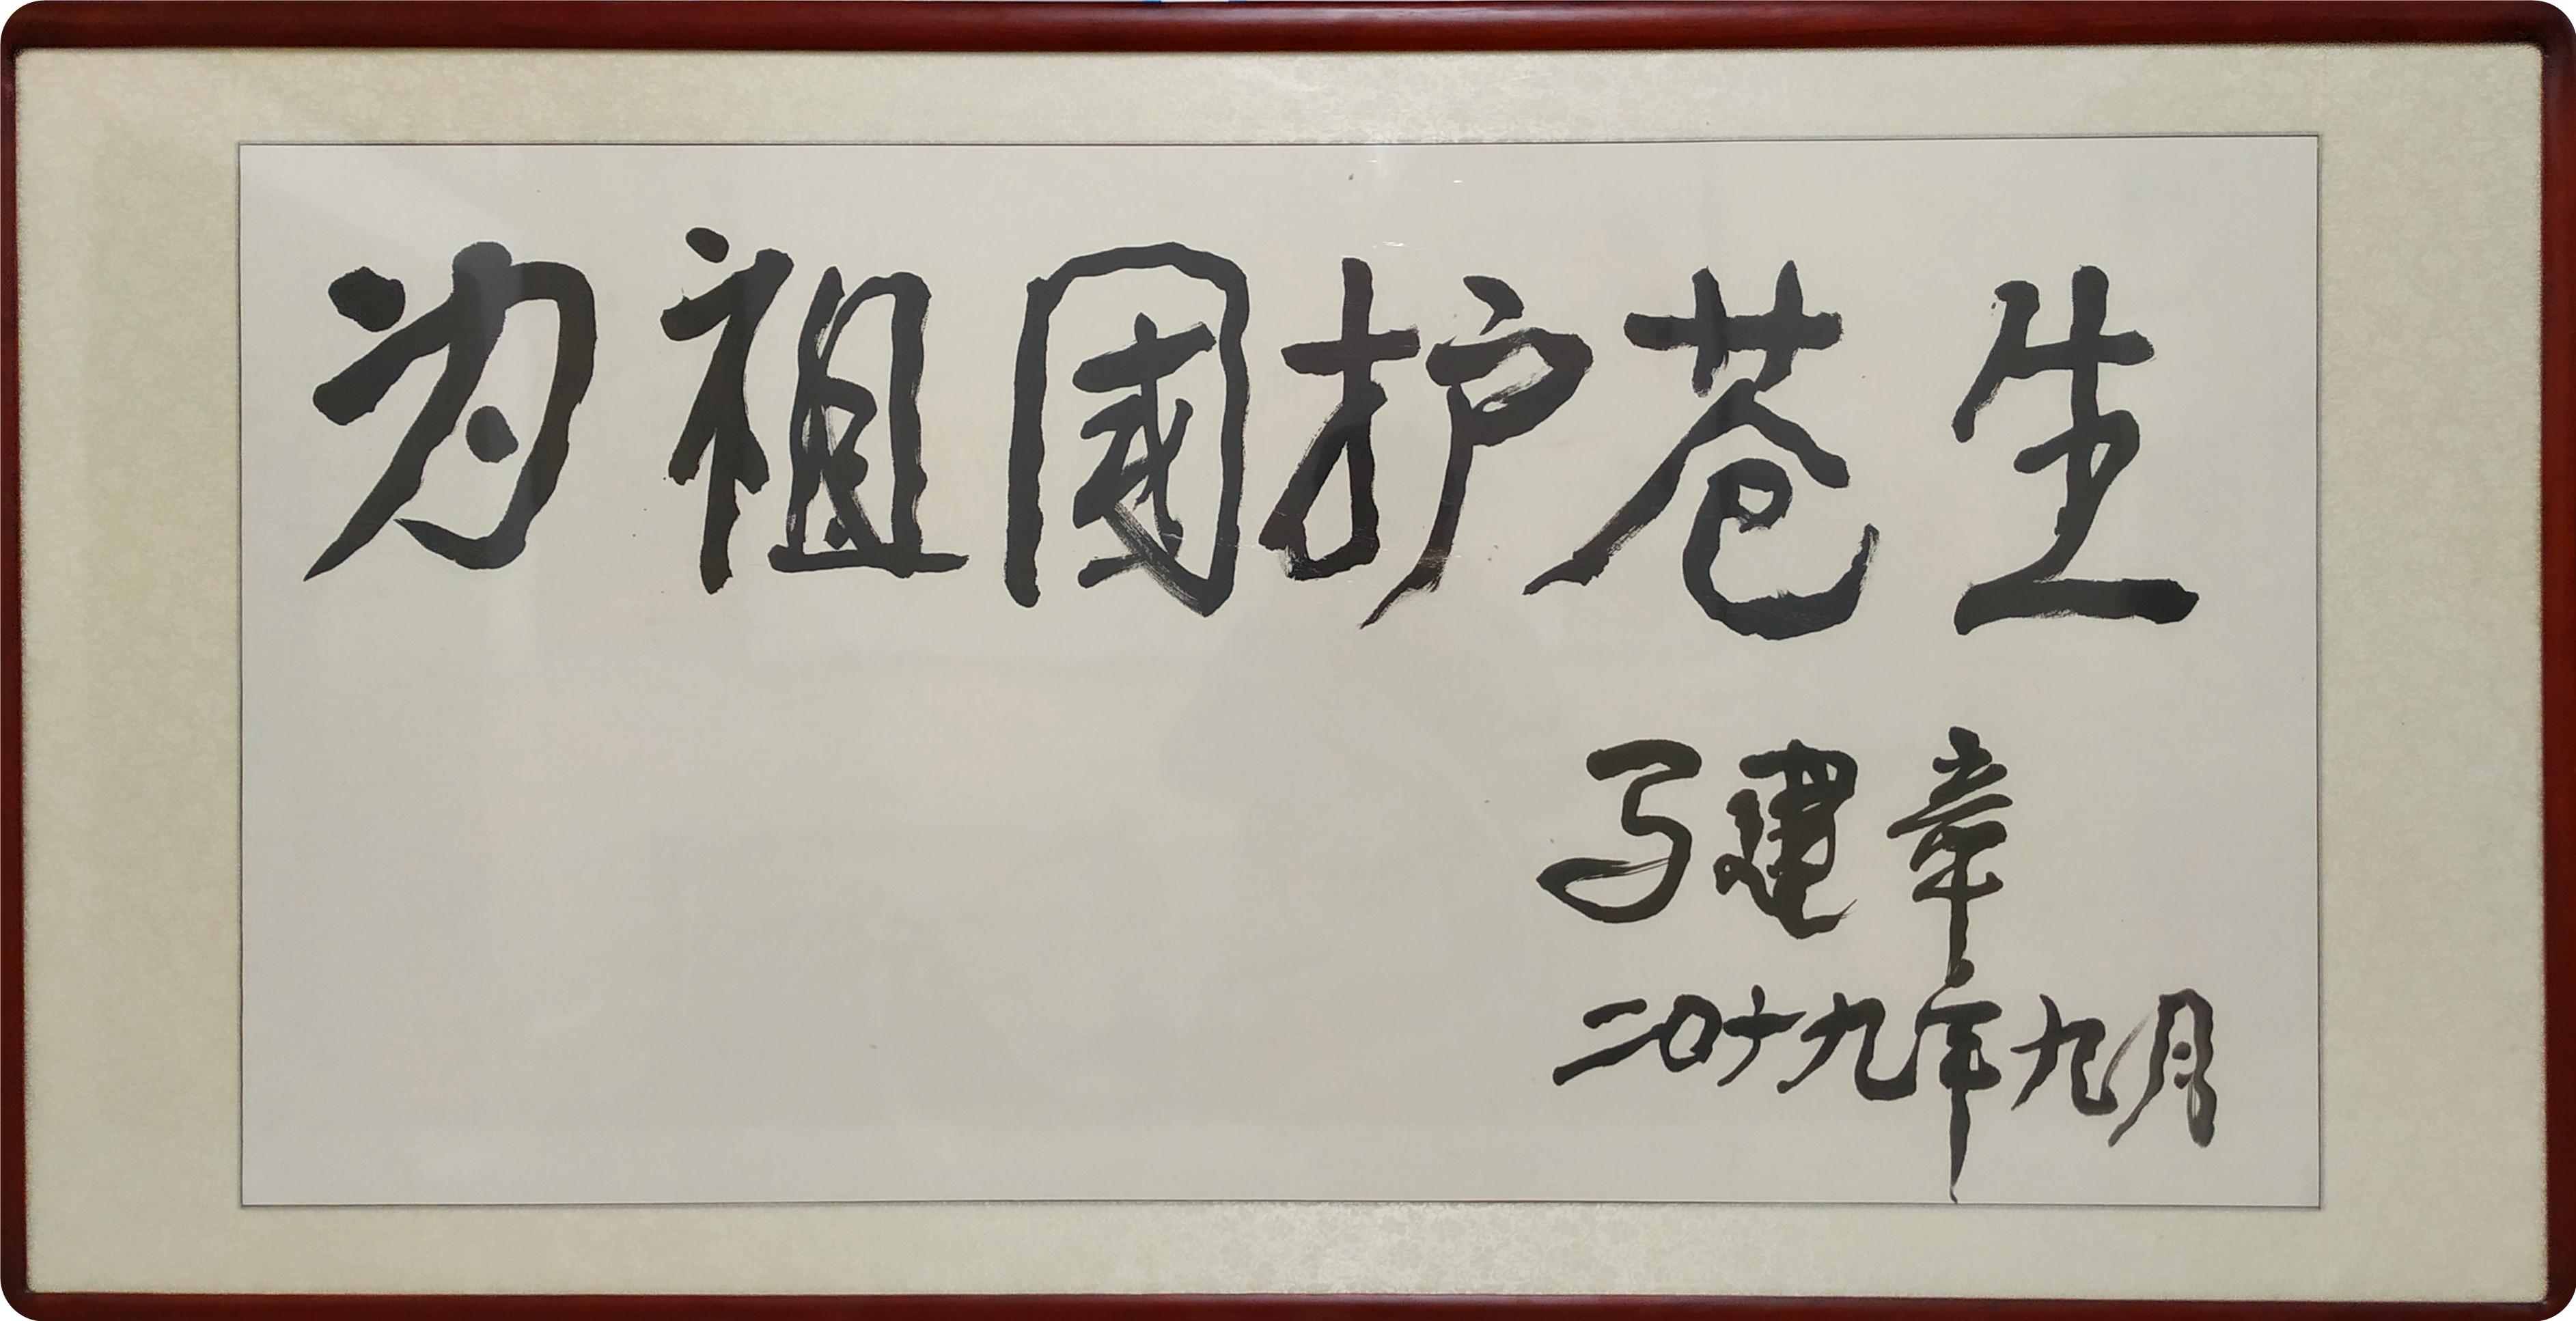 为祖國护苍生
马建章
二〇十九年九月